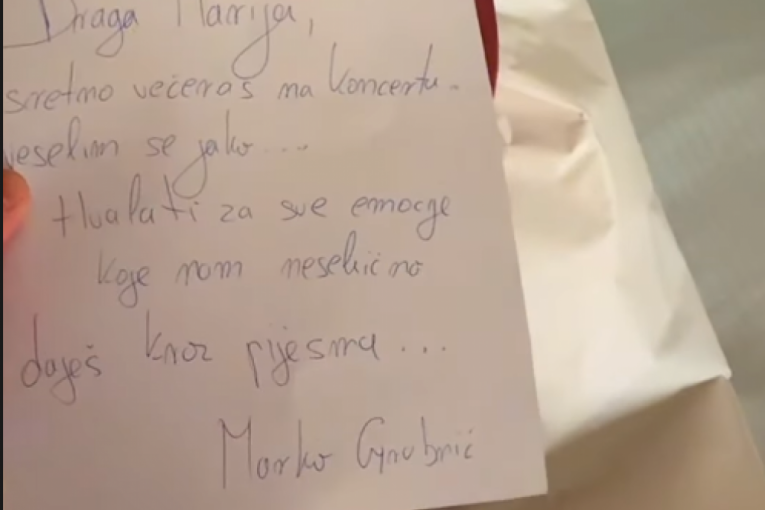 Draga Marija,
sretno večeras na koncertu.
veselim se jako...
Hvala ti za sve emocije
koje nam nesebično
daješ kroz pjesmu...
Marko Grubnić